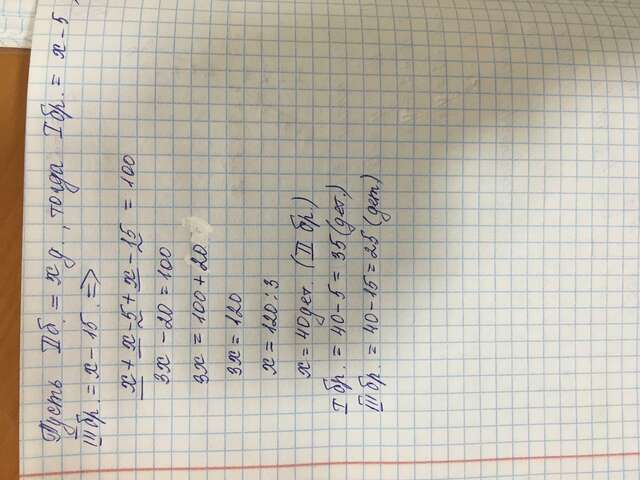 Пусть II б. = х д, тогда I бр. = х - 5,
III бр. = х - 15. =>
х + х - 5 + х - 15 = 100
3х - 20 = 100
3х = 100 + 20
3х = 120
х = 120 : 3
х = 40 дет. (II бр)
I бр. = 40 - 5 = 35 (дет.)
III бр. = 40 - 15 = 25 (дет.)